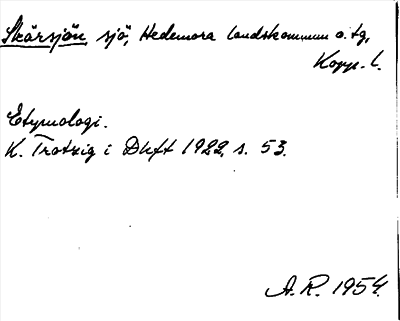 Skärsjön, sjö, Hedemora landskommun o. tg,
Kopp. l.
Etymologi.
K. Trotzig i Dhft 1922, s. 53.
A. R. 1954.